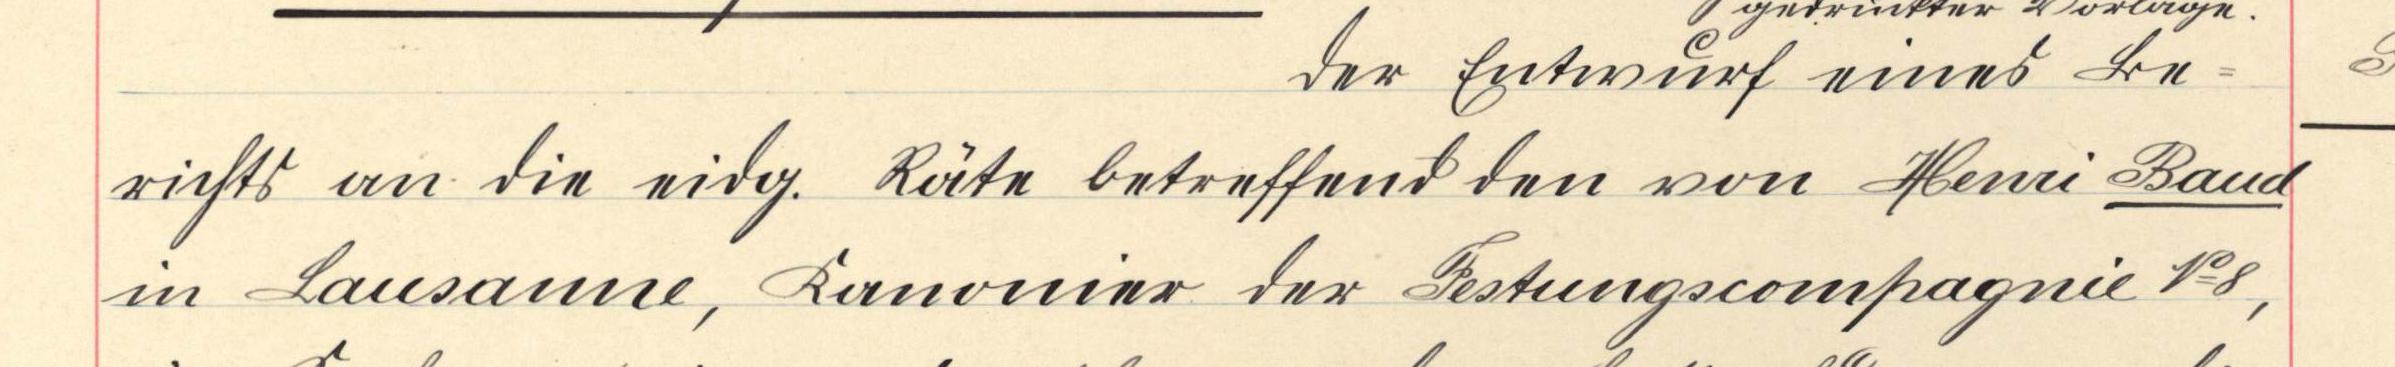 gedruckter Vorlage.
der Entwurf eines Be=
richts an die eidg. Räte betreffend den von Henri Baud
in Lausanne, Kanonier der Festungscompagnie No 8,